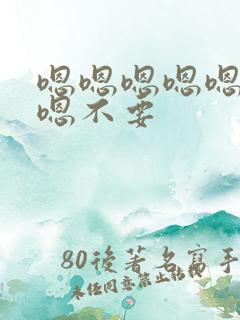 嗯嗯嗯嗯嗯
嗯不要
80後著名寫手
未任同意禁止轉載